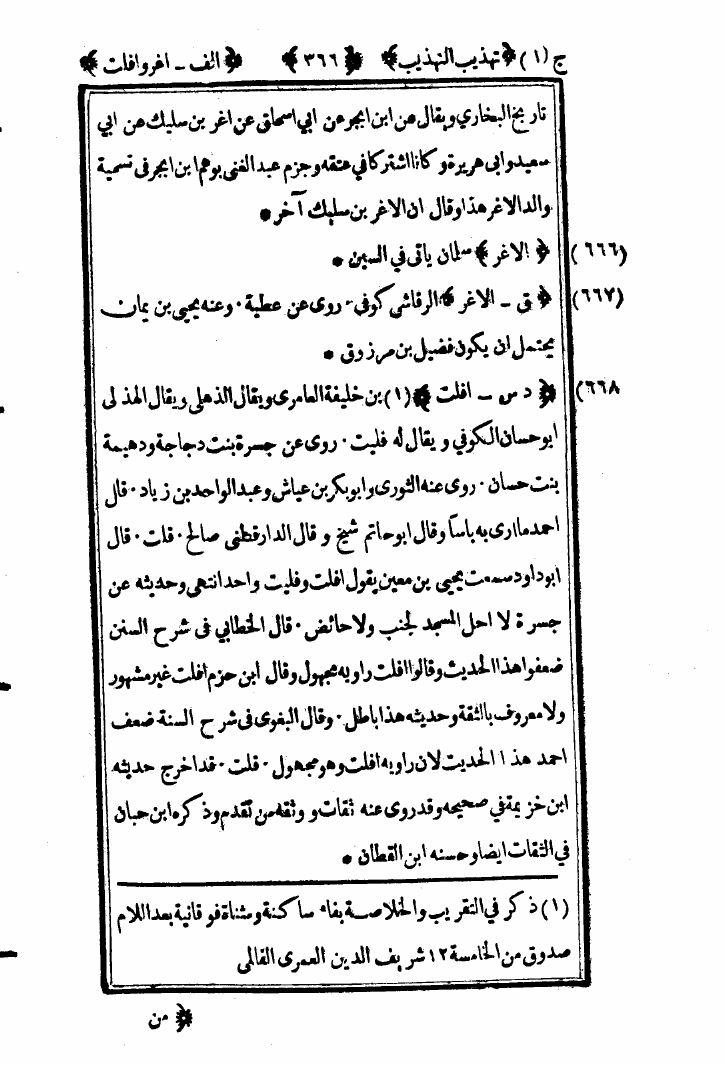 ج (١) ﴿ تهذيب التهذيب ﴾ ﴿ ٣٦٦ ﴾ ﴿ الف ـ اغر وافلت ﴾
تاريخ البخاري ويقال عن ابن ابجر عن ابي اسحاق عن اغر بن سليك عن ابي
سعيد وابى هريرة وكانا اشتركا في عتقه وجزم عبد الغنى بوهم ابن ابجر فى تسمية
والد الاغر هذا وقال ان الاغر بن سليك آخر *
(٦٦٦) ﴿ الاغر ﴾ سلمان ياتى في السين *
(٦٦٧) ﴿ ق ـ الاغر ﴾ الرقاشي كوفى ۰ روى عن عطية ۰ وعنه يحيى بن يمان
يحتمل ان يكون فضيل بن مرزوق *
(٦٦٨ ﴿ د س ـ افلت ﴾ (١) بن خليفة العامرى ويقال الذهلى ويقال الهذلى
ابو حسان الكوفي ويقال له فليت ۰ روى عن جسرة بنت دجاجة ودهيمة
بنت حسان ۰ روى عنه الثورى وابو بكر بن عياش وعبد الواحد بن زياد ۰ قال
احمد ما ارى به باساً وقال ابو حاتم شيخ و قال الدارقطنى صالح ۰ قلت ۰ قال
ابو داود سمعت يحيى بن معين يقول افلت وفليت واحد انتهى وحديثه عن
جسرة لا احل المسجد لجنب ولا حائض ۰ قال الخطابي فى شرح السنن
ضعفوا هذا الحديث وقالوا افلت راويه مجهول وقال ابن حزم افلت غير مشهور
ولا معروف بالثقة وحديثه هذا باطل ۰ وقال البغوى فى شرح السنة ضعف
احمد هذا الحديث لان راويه افلت وهو مجهول ۰ قلت ۰ قد اخرج حديثه
ابن خزيمة في صحيحه وقد روى عنه ثقات ووثقه من تقدم وذكره ابن حبان
في الثقات ايضا وحسنه ابن القطان *
(١) ذكر في التقريب والخلاصة بفاء ساكنة ومثناة فوقانية بعد اللام
صدوق من الخامسة ١٢ شريف الدين العمرى الفالمى
﴿ من